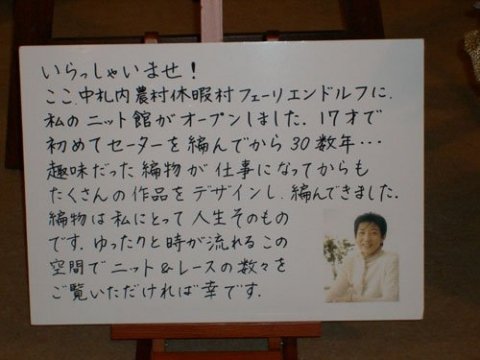 いらっしゃいませ!
ここ、中札内農村休暇村フェーリエンドルフに、
私のニット館がオープンしました。17才で
初めてセーターを編んでから30数年…
趣味だった編物が仕事になってからも
たくさんの作品をデザインし、編んできました。
編物は私にとって人生そのもの
です。ゆったりと時が流れるこの
空間でニット&レースの数々を
ご覧いただければ幸です。